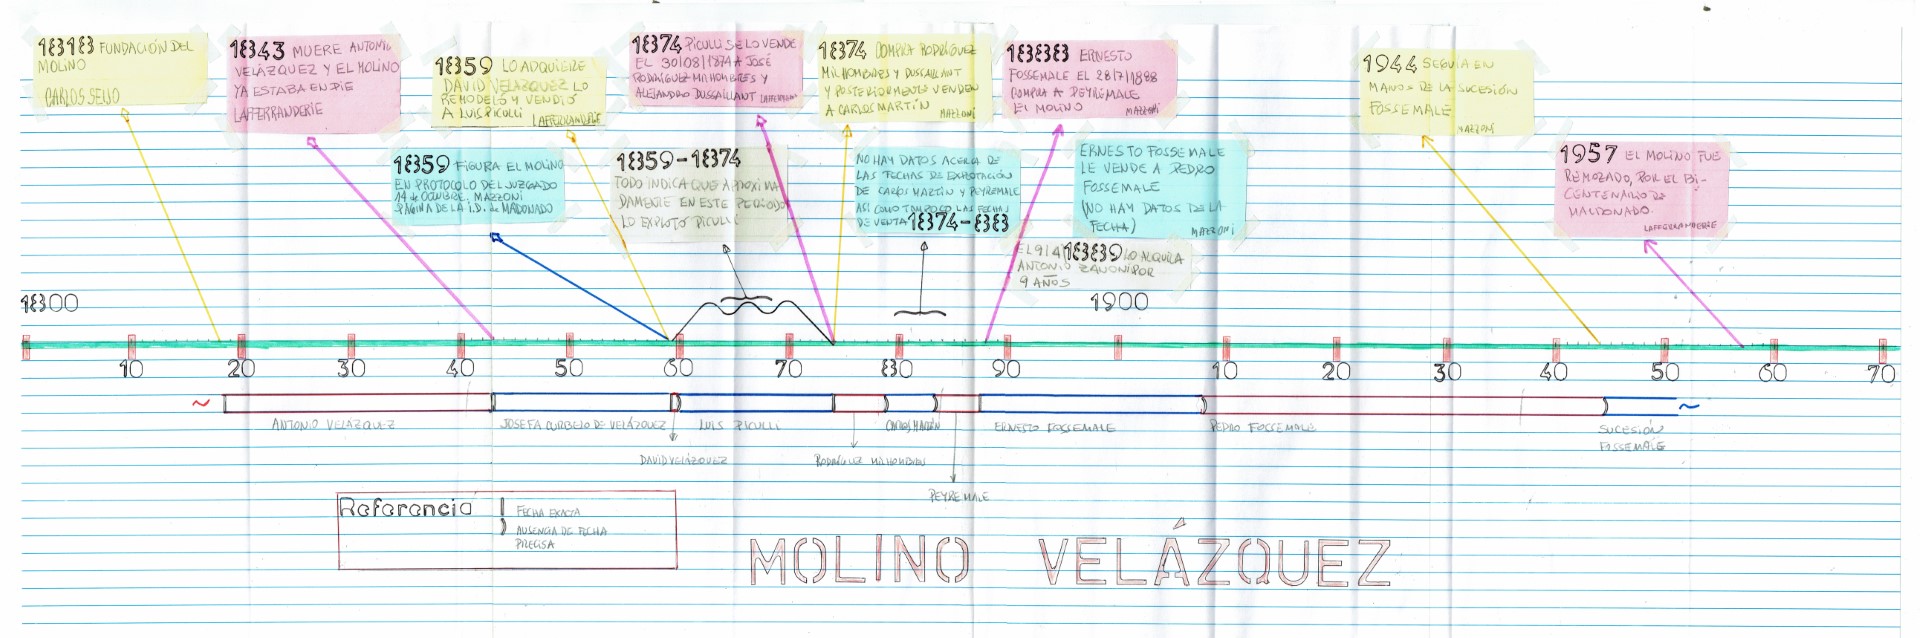 1818 FUNDACIÓN DEL
MOLINO
CARLOS SEIJO
1843 MUERE ANTONIO
VELÁZQUEZ Y EL MOLINO
YA ESTABA EN PIE
LAFFERRANDERIE
1859 LO ADQUIERE
DAVID VELAZQUEZ LO
REMODELÓ Y VENDIÓ
A LUIS PICULLI LAFFERRANDERIE
1874 PICULLI SE LO VENDE
EL 30/08/1874 A JOSÉ
RODRÍGUEZ MILHOMBRES Y
ALEJANDRO DUSSAILLANT
1874 COMPRA RODRÍGUEZ
MILHOMBRES Y DUSSAILLANT
Y POSTERIORMENTE VENDEN
A CARLOS MARTÍN MAZZONI
1888 ERNESTO
FOSSEMALE EL 28/7/1888
COMPRA A PEYREMALE
EL MOLINO MAZZONI
1944 SEGUIA EN
MANOS DE LA SUCESIÓN
FOSSEMALE
MAZZONI
1859 FIGURA EL MOLINO
EN PROTOCOLO DEL JUZGADO
14 de OCTUBRE. MAZZONI
PÁGINA DE LA I.D. de MALDONADO
1859-1874
TODO INDICA QUE APROXIMA
DAMENTE EN ESTE PERIODO
LO EXPLOTÓ PICULLI
NO HAY DATOS ACERCA DE
LAS FECHAS DE EXPLOTACIÓN
DE CARLOS MARTÍN Y PEYREMALE
ASÍ COMO TAMPOCO LAS FECHAS
DE VENTA 1874-888
ERNESTO FOSSEMALE
LE VENDE A PEDRO
FOSSEMALE
(NO HAY DATOS DE LA
FECHA) MAZZONI
1957 EL MOLINO FUE
REMOZADO, POR EL BI-
CENTENARIO DE
MALDONADO.
LAFFERRANDERIE
EL 9/4/1889 LO ALQUILA
ANTONIO ZANONI POR
9 AÑOS
1800
1900
10 20 30 40 50 60 70 80 90 10 20 30 40 50 60 70
ANTONIO VELÁZQUEZ
JOSEFA CURBELO DE VELÁZQUEZ
LUIS PICULLI
CARLOS MARTÍN
ERNESTO FOSSEMALE
PEDRO FOSSEMALE
SUCESIÓN
FOSSEMALE
DAVID VELÁZQUEZ
RODRÍGUEZ MILHOMBRES
PEYREMALE
Referencia
FECHA EXACTA
AUSENCIA DE FECHA
PRECISA
MOLINO VELÁZQUEZ